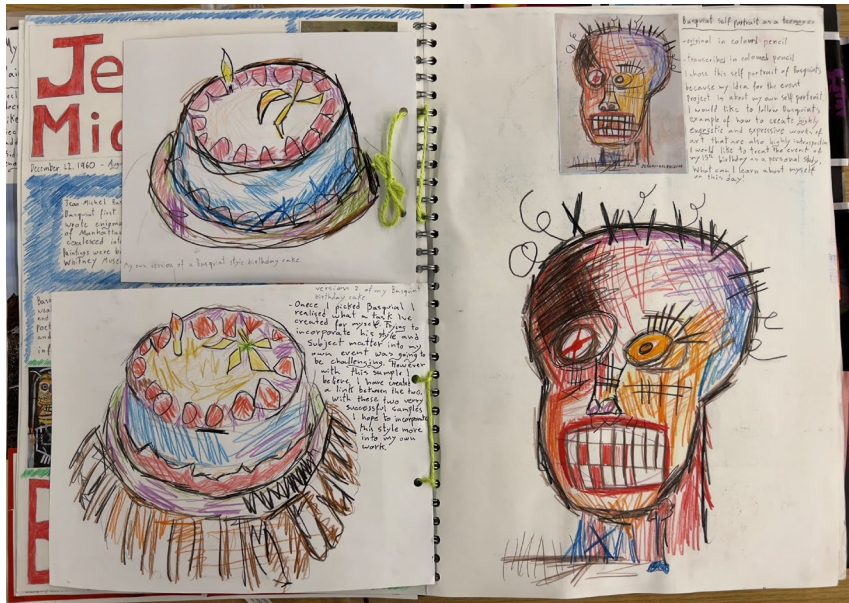 Je
Mic
December 22, 1960 - Aug
Jean Michel Bas
Basquiat first
wrote enigma
of Manhatta
coalesced int
Paintings were b
Whitney Museu
My own version of a Basquiat style birthday cake.
version 2 of my Basquiat
birthday cake
- Onece I picked Basquiat I
realised what a task Ive
created for myself. Trying to
incorporate his style and
subject matter into my
own event was going to
be challenging. However
with this sample I
believe, I have created
a link between the two.
With these two very
successful samples
I hope to incorporate
this style more
into my own
work.
Basquiat self portrait as a teenager
- original in colored pencil
- transcribed in colored pencil
I chose this self portrait of Basquiats
because my idea for the event
Project is about my own self portrait.
I would like to follow Basquiats
example of how to create highly
energetic and expressive works of
art that are also highly introspective
I would like to treat the event of
my 15th birthday as a personal study.
What can I learn about myself
on this day?